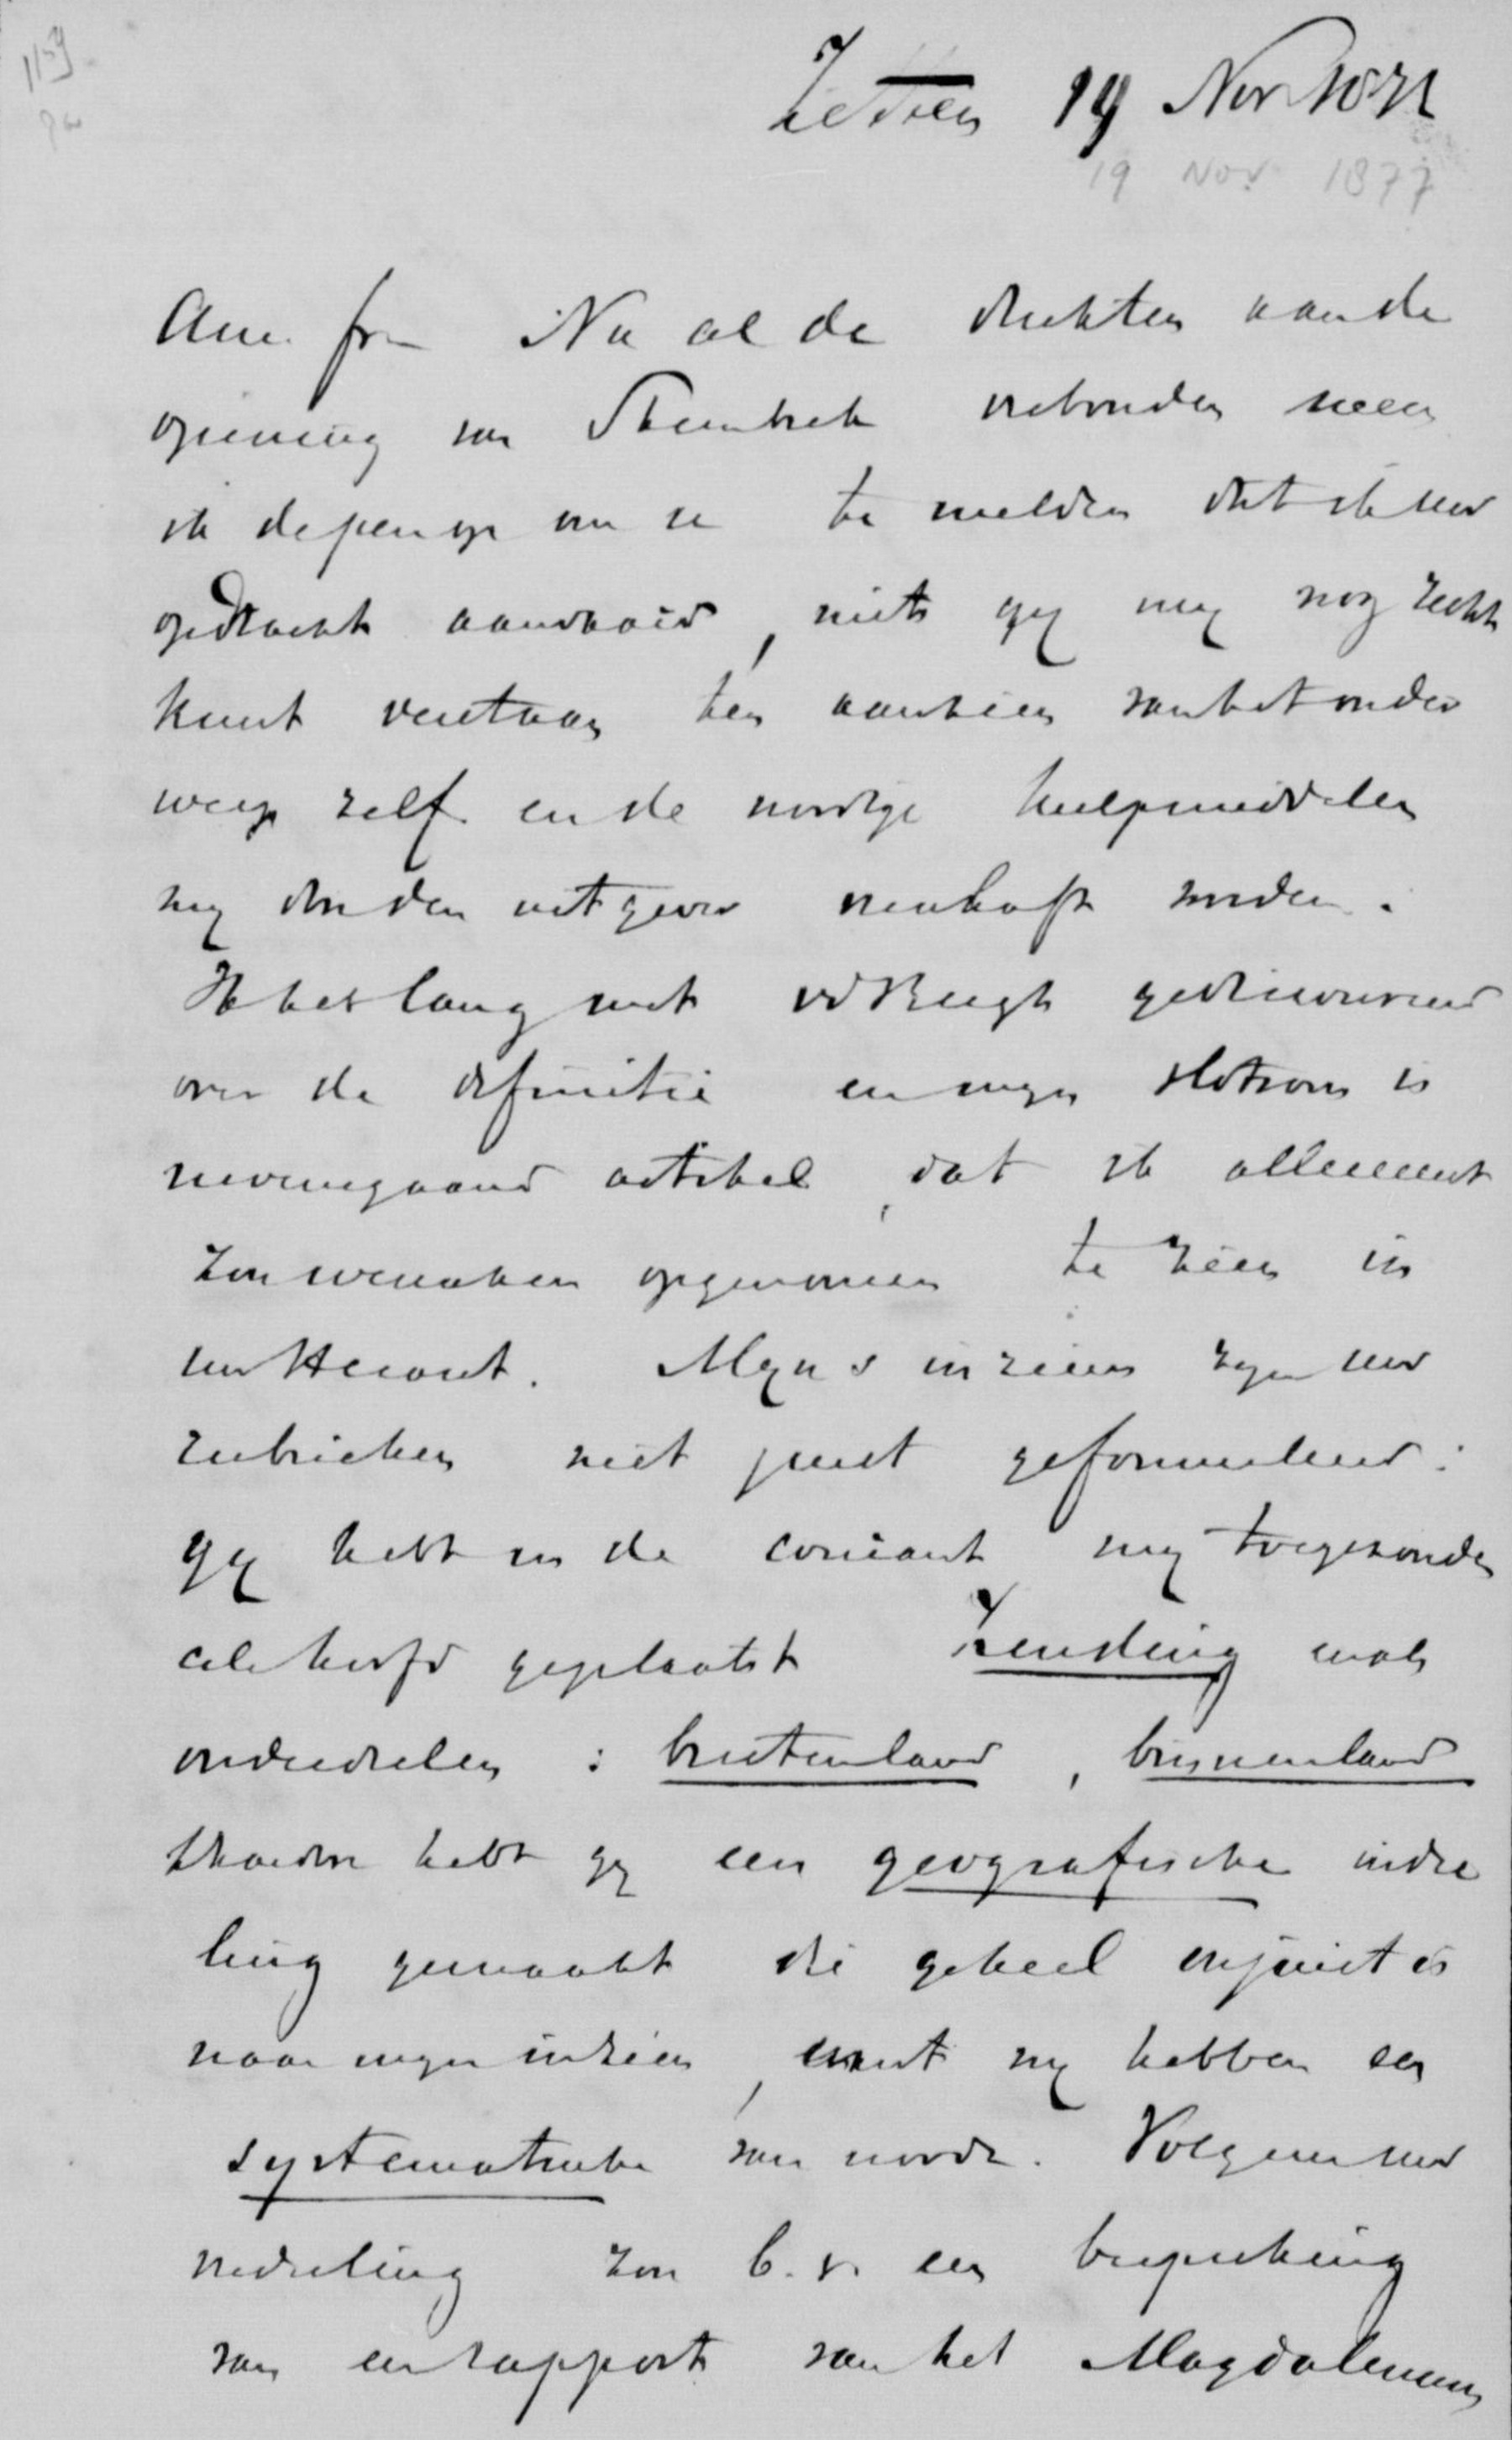 119
Zetten 19 Nov 1877
19 Nov 1877
Am. fr. Nu al de drukten aan de
opening van Steenbeek verbonden neem
ik de pen op om u te melden dat ik uw
opdracht aanvaard, mits gij mij nog recht
kunt verstaan ten aanzien van het onder
werp zelf en de noodige hulpmiddelen
mij door den uitgever verschaft worden.
Ik heb lang met vd Bergh gediscoureerd
over de definitie en mijn slotsom is
nevensgaand artikel, dat ik allereerst
zou wenschen opgenomen te zien in
uw Heraut. Mijns inziens zijn uw
rubrieken niet juist geformuleerd:
gij hebt in de courant mij toegezonden
als hoofd geplaatst Zending en als
onderdeelen: buitenland, binnenland
daardoor hebt gij een geografische indee
ling gemaakt die geheel onjuist is
naar mijn inzien, want wij hebben een
systematische van noode. Volgens uw
indeeling zou b.v. een bespreking
van een rapport van het Magdalenum